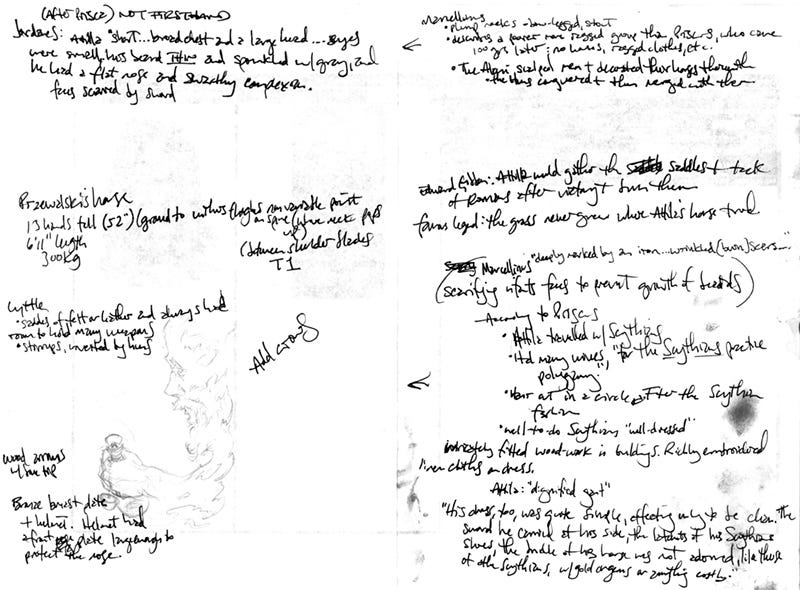 (After Priscus) NOT FIRSTHAND
Jordanes: Attila "short... broad chest and a large head... eyes
were small, his beard thin and sprinkled w/gray, and
he had a flat nose and swarthy complexion.
face scarred by sword
Przewalski's horse
13 hands tall (52") (ground to withers
6'11" length
300kg
(between shoulder blades
T1
Lyttle
• saddles of felt or leather and always had
room to hold many weapons
• stirrups, invented by huns
Add crowd
wood arrows
Bronze breast plate
+ helmet. Helmet had
a front plate large enough to
protect the nose.
Marcellinus
• plump necks - bow-legged, stout
• describes a poorer more ragged group than Priscus, who came
100 yrs later; no homes, ragged clothes, etc.
• The scalped men + decorated their
the Huns conquered + then merged with them
Edward Gibbon: Attila would gather the saddles + tack
of Romans after victory + burn them
famous legend: the grass never grew where Attila's horse trod
Marcellinus "deeply marked by an iron... wrinkled (burn) scars..."
(scarifying infants faces to prevent growth of beards)
According to Priscus
• Attila travelled w/ Scythians
• Had many wives, "for the Scythians practice
polygamy."
• in a circle after the Scythian
fashion
• well-to-do Scythians "well-dressed"
intricately fitted wood-work in buildings. Richly embroidered
linen cloths on dress.
Attila: "dignified gait"
"His dress, too, was quite simple, affecting only to be clean. The
sword he carried at his side, the latchets of his Scythian
shoes, the bridle of his horse was not adorned, like those
of other Scythians, w/ gold or gems or anything costly."